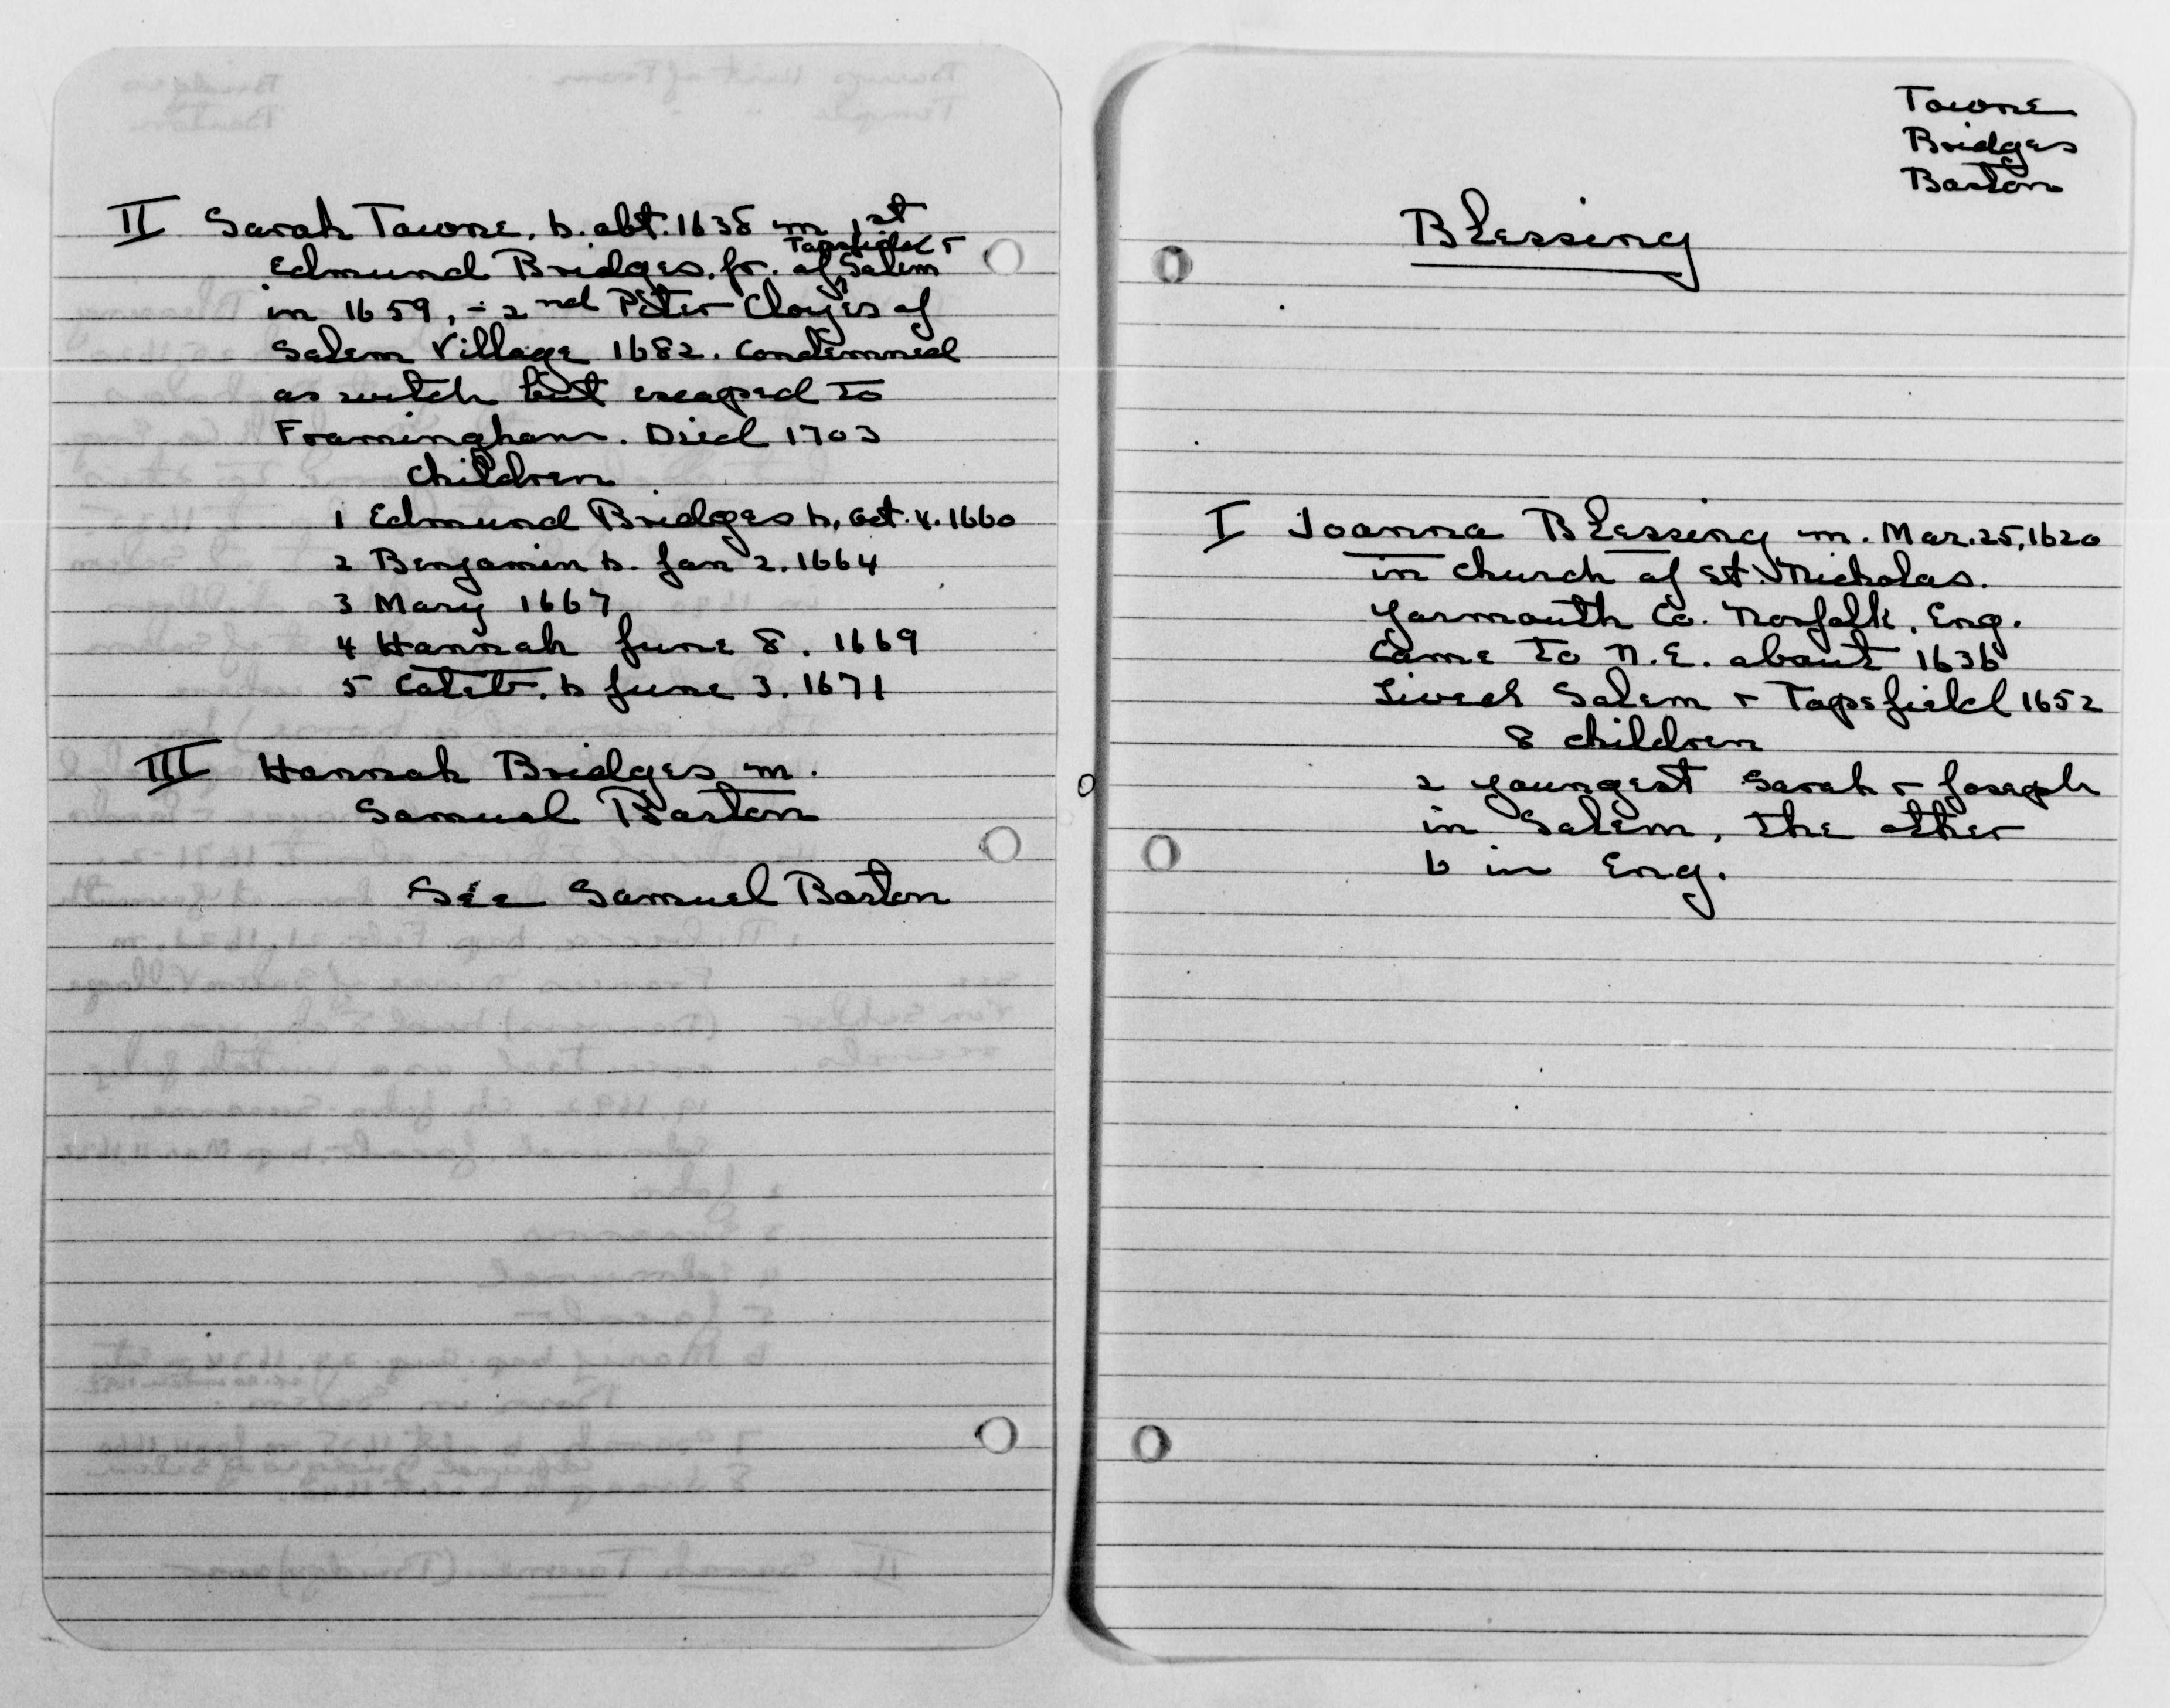 II Sarah Towne, b. abt. 1638 m 1st
Topsfield &
Edmund Bridges, Jr. of Salem
in 1659, - 2nd Peter Cloyes of
Salem Village 1682. Condemned
as witch but escaped to
Framingham. Died 1703
Children
1 Edmund Bridges b, Oct. 4. 1660
2 Benjamin b. Jan 2. 1664
3 Mary 1667
4 Hannah June 8. 1669
5 Caleb. b June 3. 1671
III Hannah Bridges m.
Samuel Barton
See Samuel Barton
Towne
Bridges
Barton
Blessing
I Joanna Blessing m. Mar. 25, 1620
in church of St. Nicholas.
Yarmouth Co. Norfolk, Eng.
Came to N.E. about 1636
Lived Salem & Topsfield 1652
8 children
2 youngest Sarah & Joseph
in Salem, the other
6 in Eng.